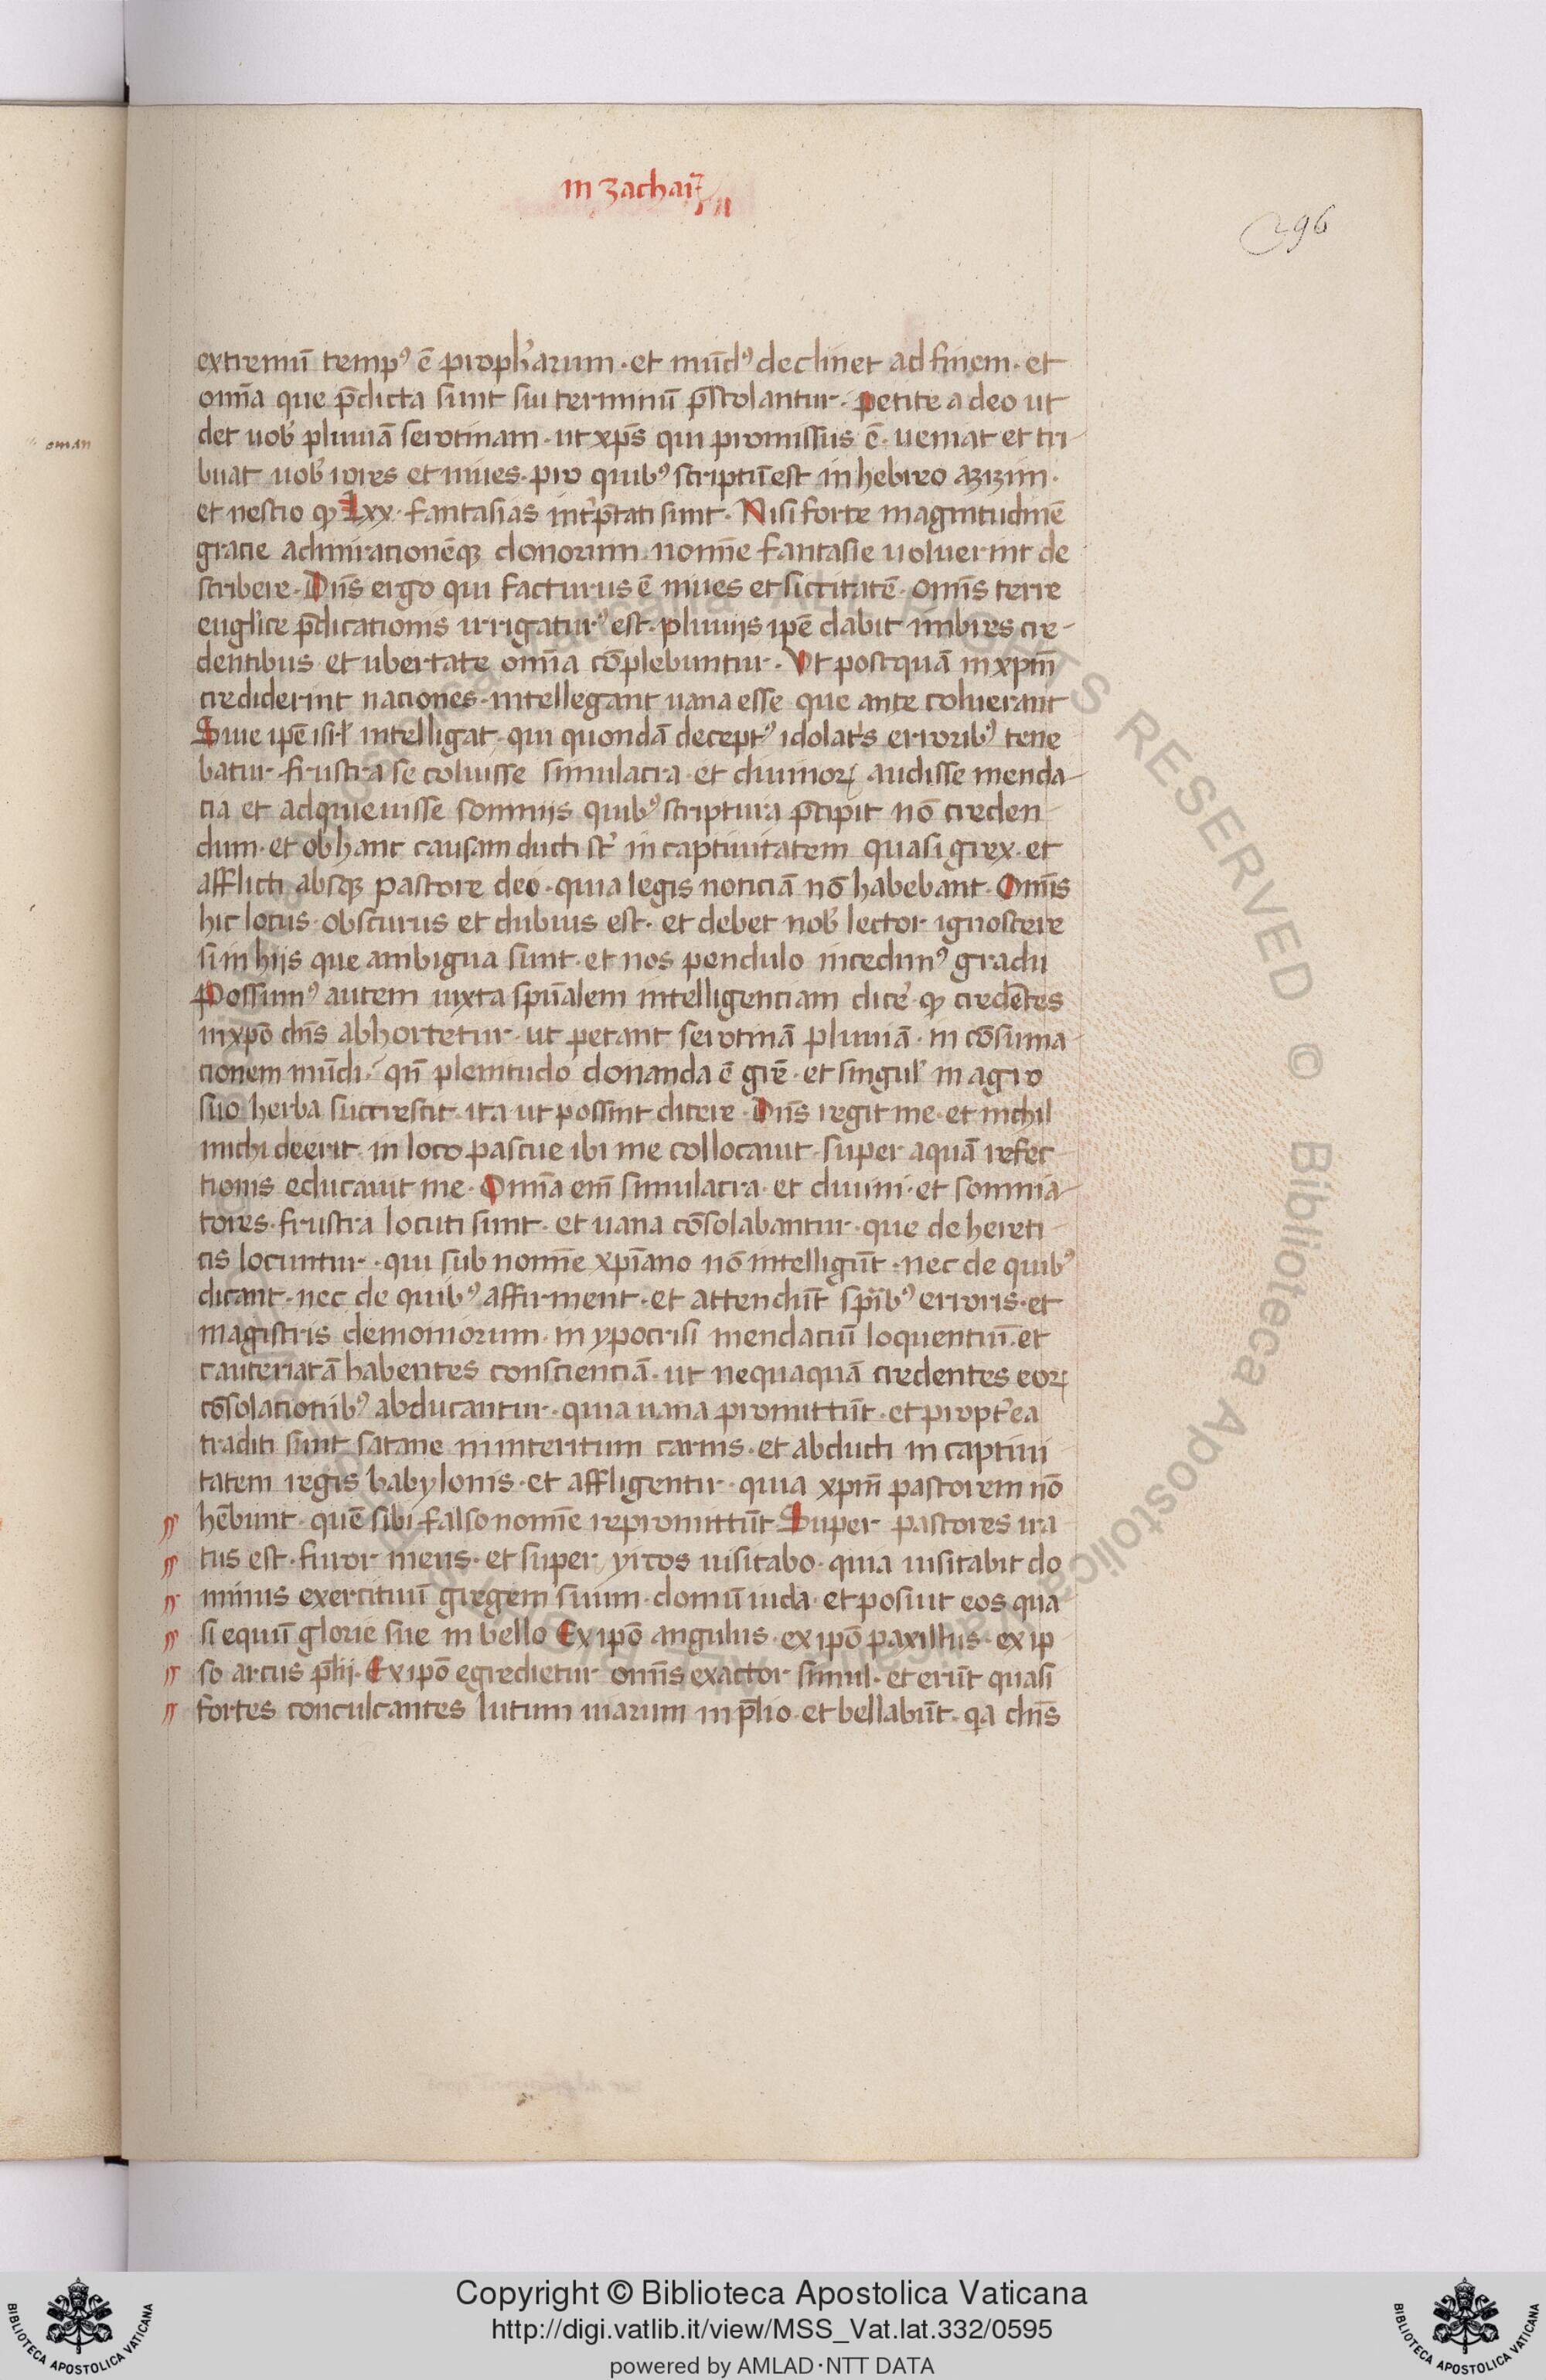 in zachar̄
296
extremū temp⁹ ē proph̓arum · et mūd⁹ declinet ad finem · et
om̄a que p̄dicta sunt sui terminū p̄stolantur · Petite a deo ut
det uob̓ pluuiā serotinam · ut xp̄s qui promissus ē · ueniat et tri-
buat uob̓ rores et niues · pro quib⁹ scriptū est in hebreo azizim ·
et nescio ꝙ lxx · fantasias int̓p̄tati sunt · Nisi forte magnitudinē
gracie admirationēqꝫ donorum · nomīe fantasie uoluerint de
scribere · Dn̄s ergo qui facturus ē niues et siccitatē · om̄is terre
eug̓lice p̄dicationis irrigatur⁹ est · pluuijs ipē dabit imbres cre-
dentibus · et ubertate om̄ia cōplebuntur · Ut postquā in xpm̄
crediderint naciones · intellegant uana esse que ante coluerant
Siue ipē isrl̓ intelligat · qui quondā decept⁹ idolat̓s errorib⁹ tene
batur · frustra se coluisse simulacra · et diuinoꝝ audisse menda-
cia et adquieuisse somnijs quib⁹ scriptura p̄cipit nō creden-
dum · et ob hanc causam ducti st̓ in captiuitatem quasi grex · et
afflicti absqꝫ pastore deo · quia legis noticiā nō habebant · Om̄is
hic locus · obscurus et dubius est · et debet nob̓ lector ignoscere
si in hijs que ambigua sunt · et nos pendulo incedim⁹ gradu
Possum⁹ autem iuxta spūalem intelligenciam dicē ꝙ credētes
in xpō dn̄s abhortetur · ut petant serotinā pluuiā · in cōsuma-
tionem mūdi · qn̄ plenitudo donanda ē grē · et singul̓ in agro
suo herba succrescit · ita ut possint dicere · Dn̄s regit me · et nichil
michi deerit · in loco pascue ibi me collocauit · super aquā refec-
tionis educauit me · Omīa em̄ simulacra · et diuini · et somnia-
tores · frustra locuti sunt · et uana cōsolabantur · que de hereti-
cis locuntur · qui sub nomīe xpīano nō intelligūt · nec de quib⁹
dicant · nec de quib⁹ affirment · et attendūt sp̄rib⁹ erroris · et
magistris demoniorum · in ypocrisi mendaciū loquentiū · et
cauteriatā habentes conscienciā · ut nequaquā credentes eoꝝ
cōsolationib⁹ abducantur · quia uana promittūt · et propt̓ea
traditi sunt satane in interitum carnis · et abducti in captiui
tatem regis babylonis · et affligentur · quia xpm̄ pastorem nō
hēbunt · quē sibi falso nomīe repromittūt Super pastores ira
tus est · furor meus · et super yrcos uisitabo · quia uisitabit do
minus exercituū gregem suum · domū iuda · et posuit eos qua
si equū glorie sue in bello Ex ipō angulus · ex ipō paxillus · ex ip
so arcus p̄lij · Ex ipō egredietur om̄is exactor simul · et erūt quasi
fortes conculcantes lutum uiarum in p̄lio · et bellabūt · qa dn̄s
Copyright © Biblioteca Apostolica Vaticana
http://digi.vatlib.it/view/MSS_Vat.lat.332/0595
powered by AMLAD·NTT DATA